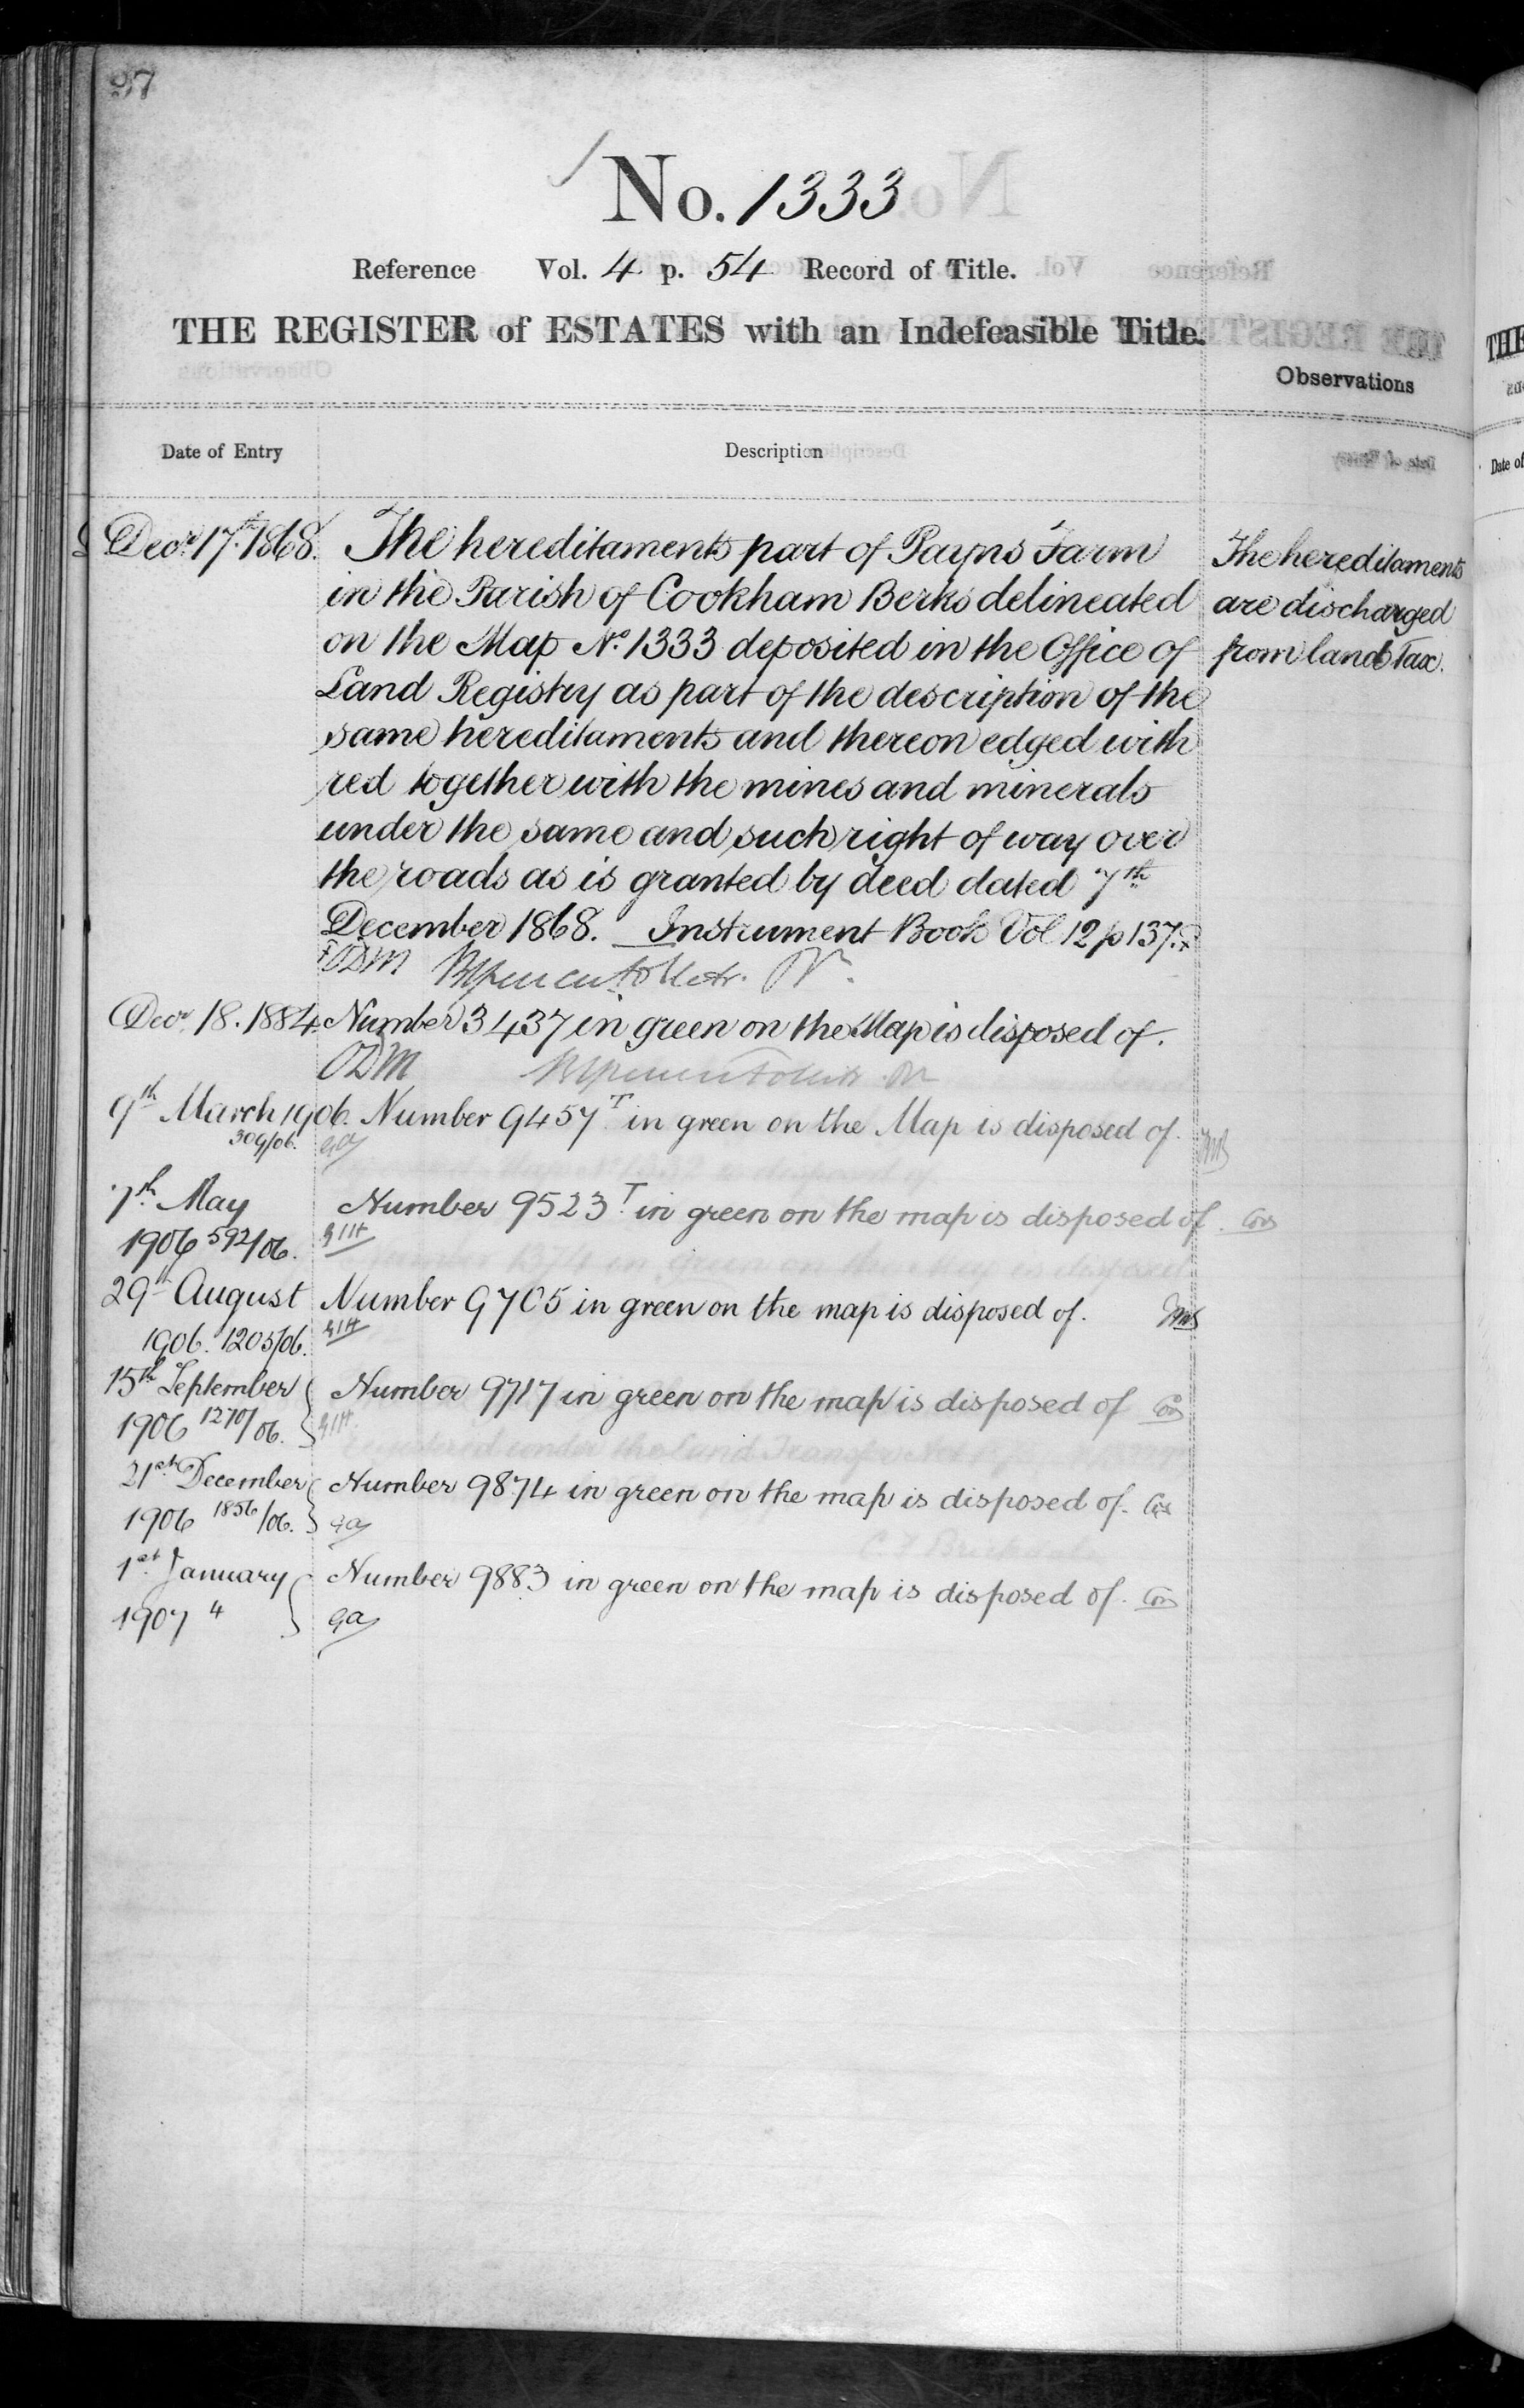 27
No. 1333
Reference Vol. 4 p. 54 Record of Title.
THE REGISTER of ESTATES with an Indefeasible Title.
Observations
Date of Entry Description
Decr. 17th 1868. The hereditaments part of Payns Farm
in the Parish of Cookham Berks delineated
on the Map No. 1333 deposited in the Office of
Land Registry as part of the description of the
same hereditaments and thereon edged with
red together with the mines and minerals
under the same and such right of way over
the roads as is granted by deed dated 7th
December 1868. Instrument Book Vol 12 p 137.
The hereditaments
are discharged
from land Tax.
ODM
Decr. 18. 1884. Number 3437 in green on the Map is disposed of.
ODM
9th March 1906. Number 9457 T in green on the Map is disposed of.
309/06.
7th May Number 9523 T. in green on the map is disposed of.
1906 592/06.
29th August Number 9705 in green on the map is disposed of.
1906. 1205/06.
15th September Number 9717 in green on the map is disposed of
1906 1270/06.
21st December Number 9874 in green on the map is disposed of.
1906 1856/06.
1st January Number 9883 in green on the map is disposed of.
1907 4
THE
Date of